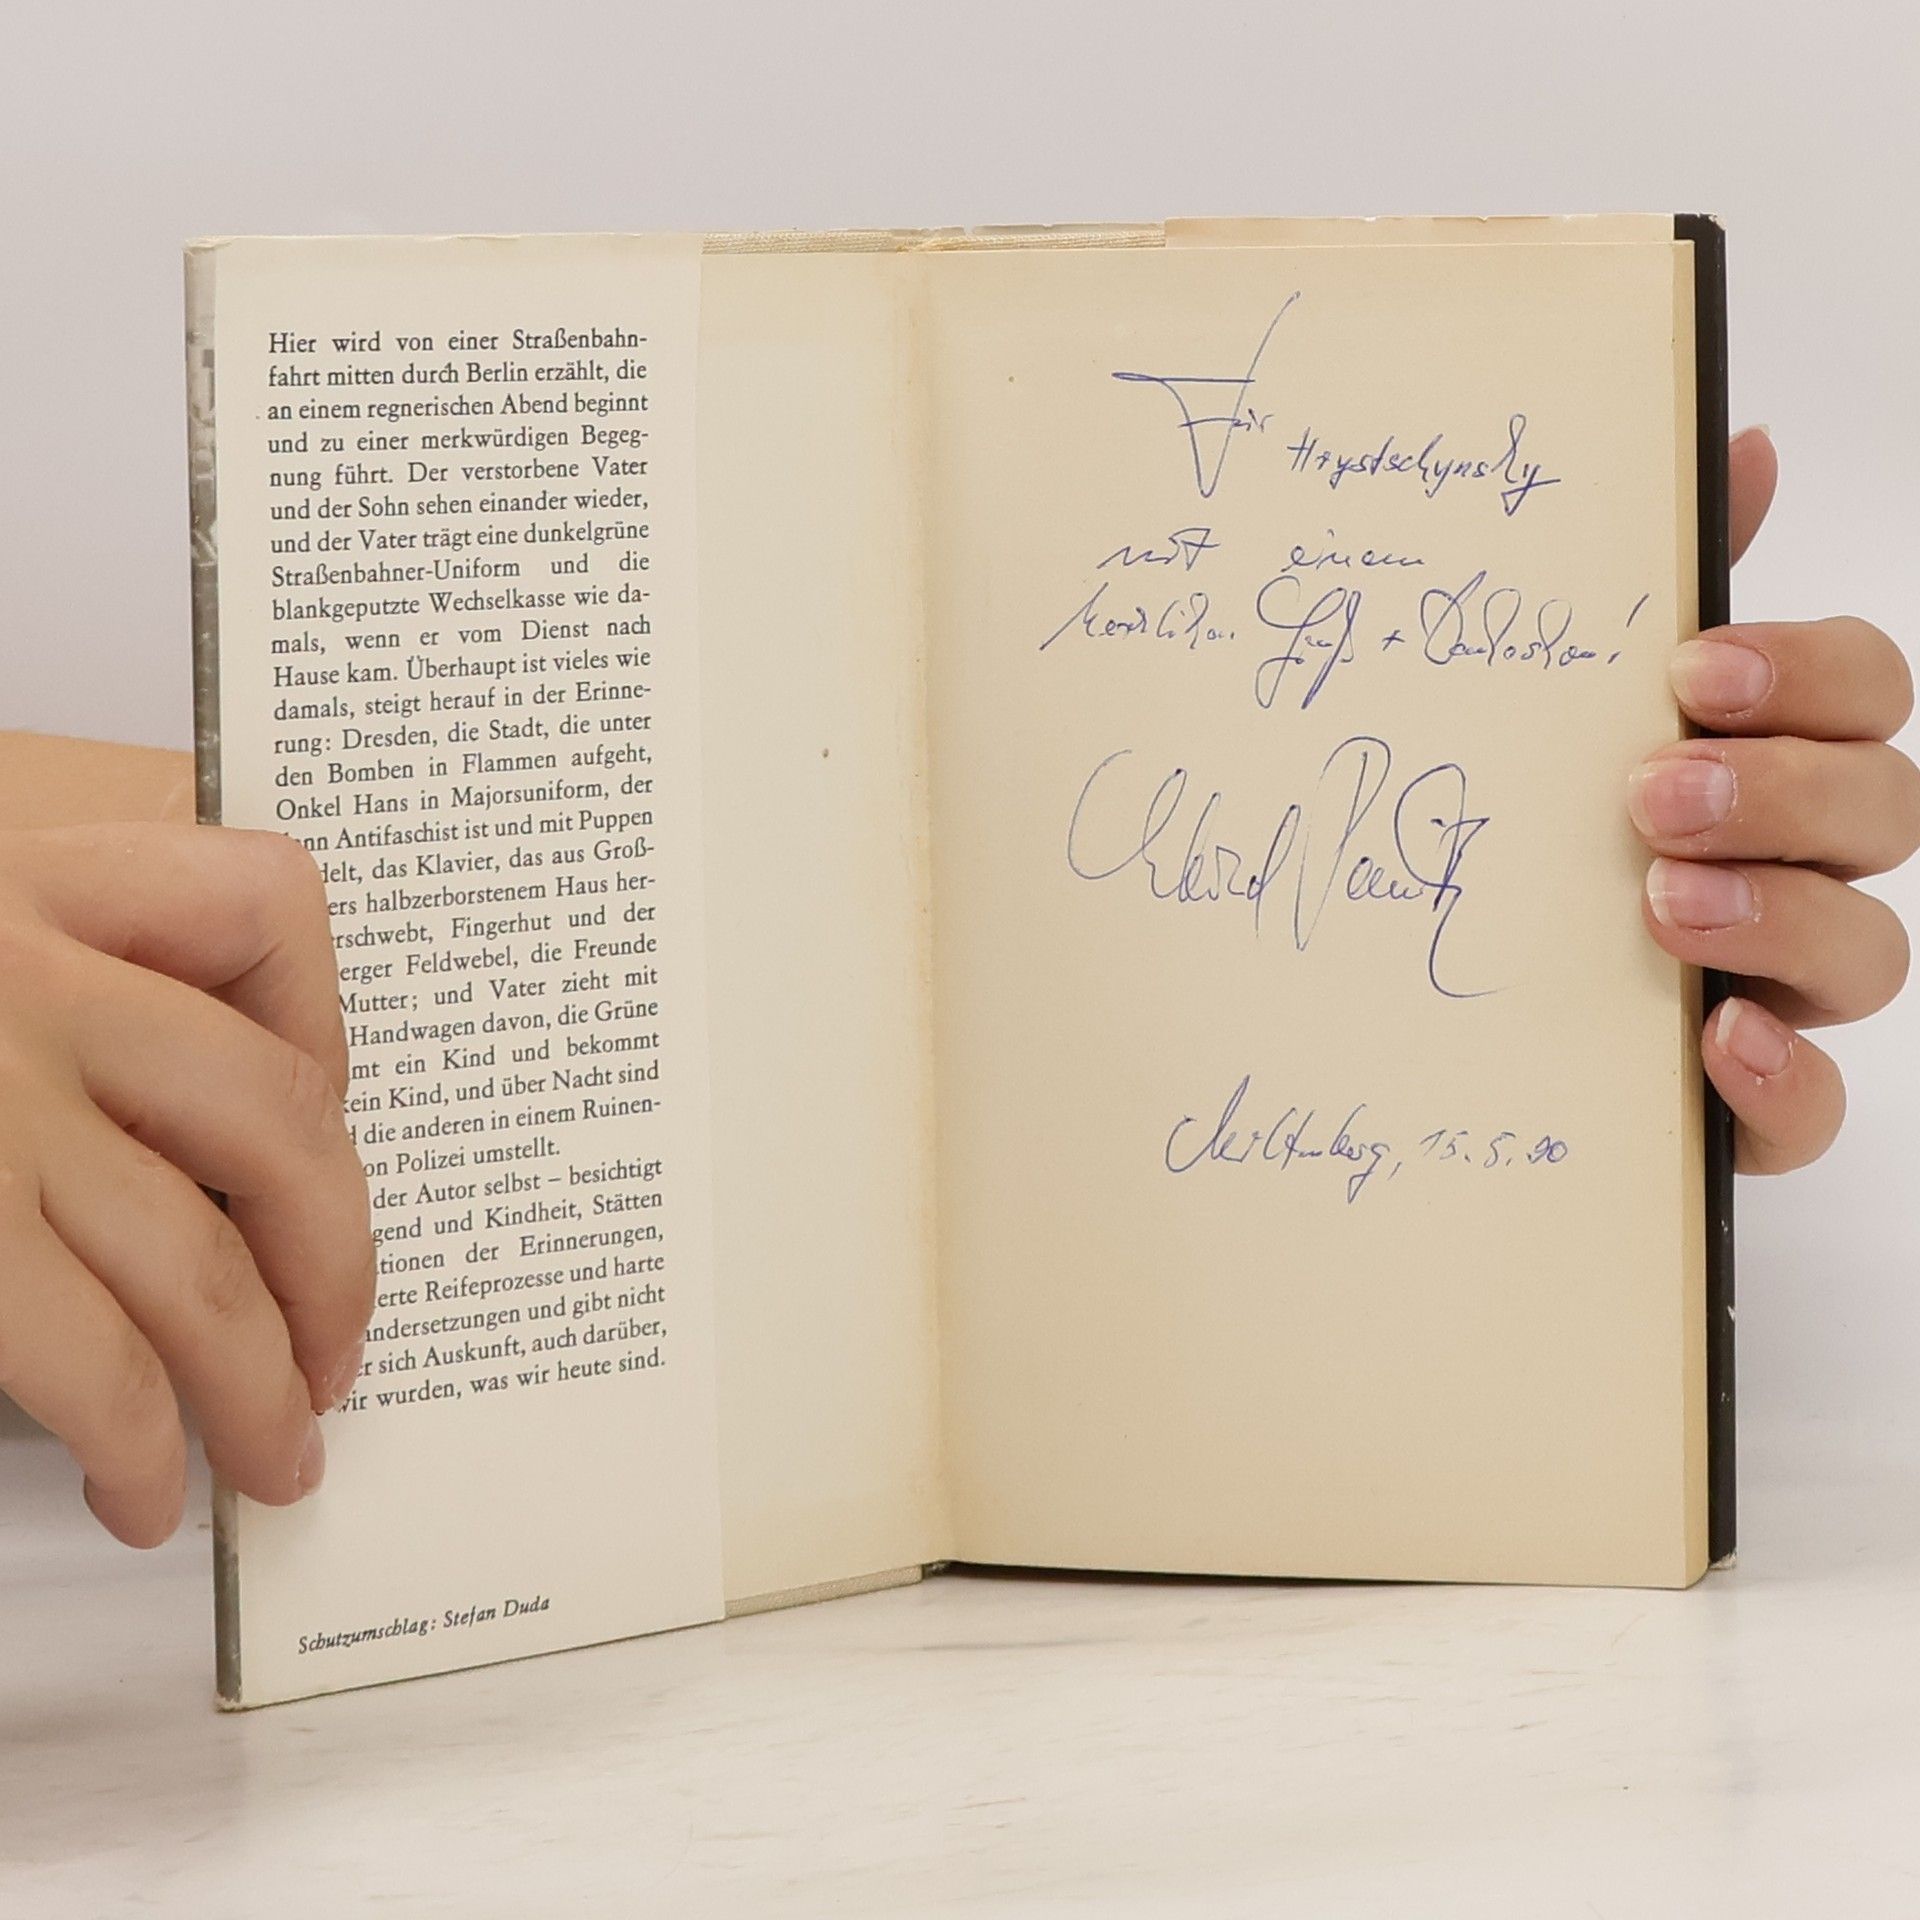 Hier wird von einer Straßenbahn-
fahrt mitten durch Berlin erzählt, die
an einem regnerischen Abend beginnt
und zu einer merkwürdigen Begeg-
nung führt. Der verstorbene Vater
und der Sohn sehen einander wieder,
und der Vater trägt eine dunkelgrüne
Straßenbahner-Uniform und die
blankgeputzte Wechselkasse wie da-
mals, wenn er vom Dienst nach
Hause kam. Überhaupt ist vieles wie
damals, steigt herauf in der Erinne-
rung: Dresden, die Stadt, die unter
den Bomben in Flammen aufgeht,
Onkel Hans in Majorsuniform, der
nn Antifaschist ist und mit Puppen
delt, das Klavier, das aus Groß-
ers halbzerborstenem Haus her-
rschwebt, Fingerhut und der
erger Feldwebel, die Freunde
Mutter; und Vater zieht mit
Handwagen davon, die Grüne
mt ein Kind und bekommt
kein Kind, und über Nacht sind
d die anderen in einem Ruinen-
on Polizei umstellt.
der Autor selbst – besichtigt
gend und Kindheit, Stätten
tionen der Erinnerungen,
erte Reifeprozesse und harte
andersetzungen und gibt nicht
r sich Auskunft, auch darüber,
wir wurden, was wir heute sind.
Schutzumschlag: Stefan Duda
Für Hrystschynsky
mit einem
herzlichen Gruß + Dankeschön!
Eberhard Panitz
15.5.90